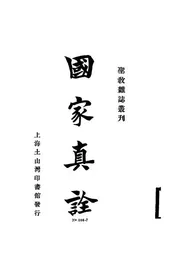 聖教雜誌叢刊
國家真詮
上海土山灣印書館發行